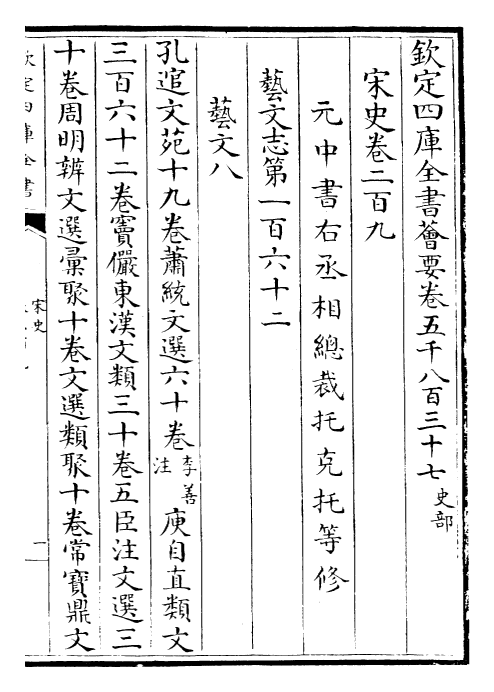 欽定四庫全書薈要卷五千八百三十七 史部
宋史卷二百九
元中書右丞相總裁托克托等修
藝文志第一百六十二
藝文八
孔逭文苑十九卷蕭統文選六十卷 李善注 庾自直類文
三百六十二卷竇儼東漢文類三十卷五臣注文選三
十卷周明辨文選彚聚十卷文選類聚十卷常寶鼎文
欽定四庫全書
宋史
一